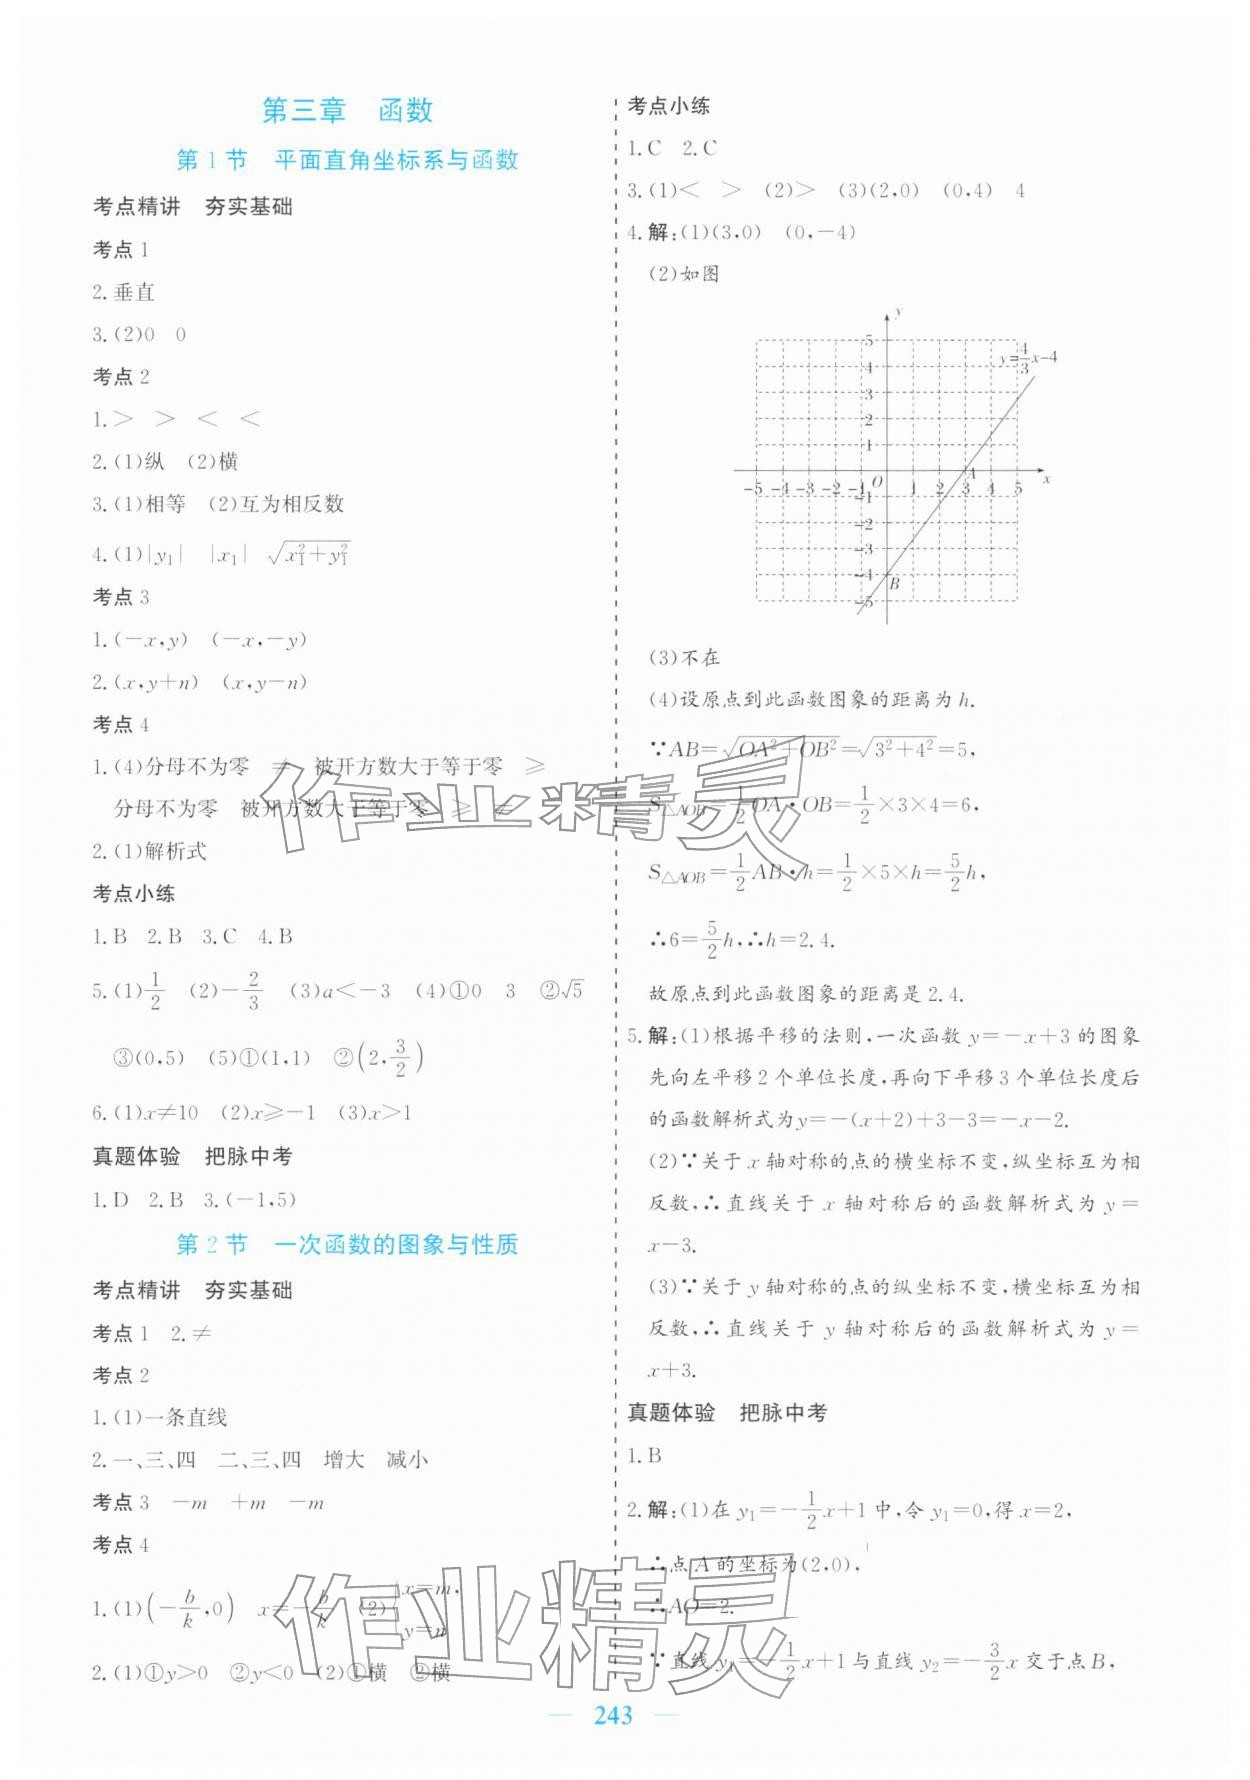 第三章　函数
第1节　平面直角坐标系与函数
考点精讲　夯实基础
考点1
2.垂直
3.(2)0　0
考点2
1.＞　＞　＜　＜
2.(1)纵　(2)横
3.(1)相等　(2)互为相反数
4.(1)|y₁|　|x₁|　√(x₁²+y₁²)
考点3
1.(−x,y)　(−x,−y)
2.(x,y+n)　(x,y−n)
考点4
1.(4)分母不为零　≠　被开方数大于等于零　≥
分母不为零　被开方数大于等于零　≥　≠
2.(1)解析式
考点小练
1.B　2.B　3.C　4.B
5.(1)1/2　(2)−2/3　(3)a＜−3　(4)①0　3　②√5
③(0,5)　(5)①(1,1)　②(2,3/2)
6.(1)x≠10　(2)x≥−1　(3)x>1
真题体验　把脉中考
1.D　2.B　3.(−1,5)
第2节　一次函数的图象与性质
考点精讲　夯实基础
考点1　2.≠
考点2
1.(1)一条直线
2.一、三、四　二、三、四　增大　减小
考点3　−m　+m　−m
考点4
1.(1)(−b/k,0)　x=−b/k　(2){x=m, y=n
2.(1)①y>0　②y<0　(2)①横　②横
考点小练
1.C　2.C
3.(1)＜　＞　(2)＞　(3)(2,0)　(0,4)　4
4.解:(1)(3,0)　(0,−4)
(2)如图
y
5
4
3
2
1
y=4/3x−4
−5 −4 −3 −2 −1 O 1 2 3 4 5 x
A
−1
−2
−3
−4
B
−5
(3)不在
(4)设原点到此函数图象的距离为h.
∵AB=√(OA²+OB²)=√(3²+4²)=5,
S△AOB=1/2OA·OB=1/2×3×4=6,
S△AOB=1/2AB·h=1/2×5×h=5/2h,
∴6=5/2h,∴h=2.4.
故原点到此函数图象的距离是2.4.
5.解:(1)根据平移的法则,一次函数y=−x+3的图象
先向左平移2个单位长度,再向下平移3个单位长度后
的函数解析式为y=−(x+2)+3−3=−x−2.
(2)∵关于x轴对称的点的横坐标不变,纵坐标互为相
反数,∴直线关于x轴对称后的函数解析式为y=
x−3.
(3)∵关于y轴对称的点的纵坐标不变,横坐标互为相
反数,∴直线关于y轴对称后的函数解析式为y=
x+3.
真题体验　把脉中考
1.B
2.解:(1)在y₁=−1/2x+1中,令y₁=0,得x=2,
∴点A的坐标为(2,0),
∴AO=2.
∵直线y₁=−1/2x+1与直线y₂=−3/2x交于点B,
243
作业精灵
作业精灵